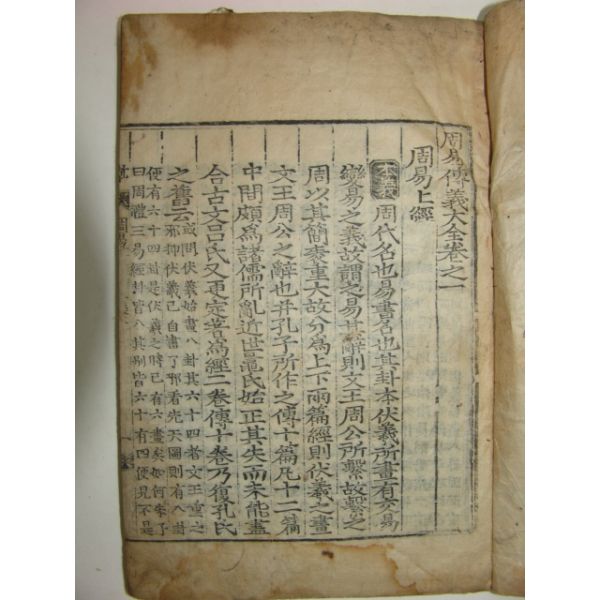 周易傳義大全卷之一
周易上經
本義 周代名也易書名也其卦本伏羲所畫有交易
變易之義故謂之易其辭則文王周公所繫故繫之
周以其簡袠重大故分爲上下兩篇經則伏羲之畫
文王周公之辭也幷孔子所作之傳十篇凡十二篇
中間頗爲諸儒所亂近世晁氏始正其失而未能盡
合古文呂氏又更定著爲經二卷傳十卷乃復孔氏
之舊云
或問伏羲始畫八卦其六十四者文王重之
邪抑伏羲已自畫了邪看先天圖則有八卦
便有六十四是伏羲之時已有六畫矣如何
曰周禮三易經卦皆八其別皆六十有四便見不是